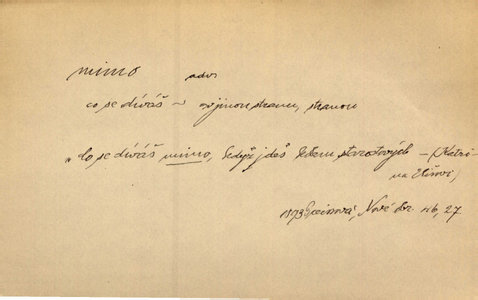 mimo adv.
co se díváš ~ v jinou stranu, stranou
„Co se díváš mimo, když jdeš kolem starostových – (Katři-
na Ethová,
1893 Preissová, Nové 46, 27